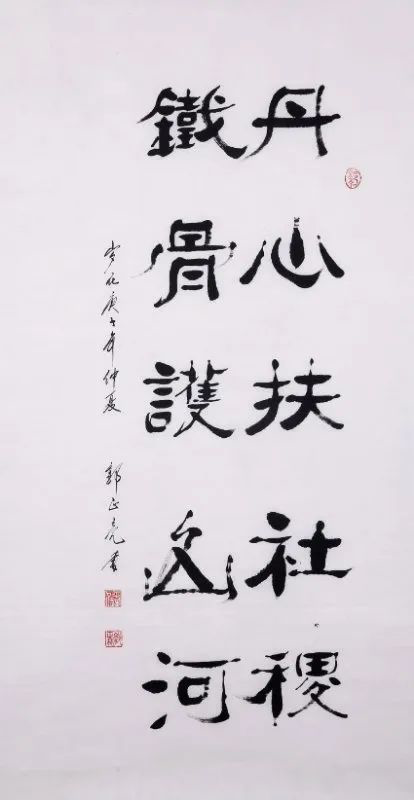 丹心扶社稷
鐵骨護山河
岁在庚子年仲夏
郭正亮書